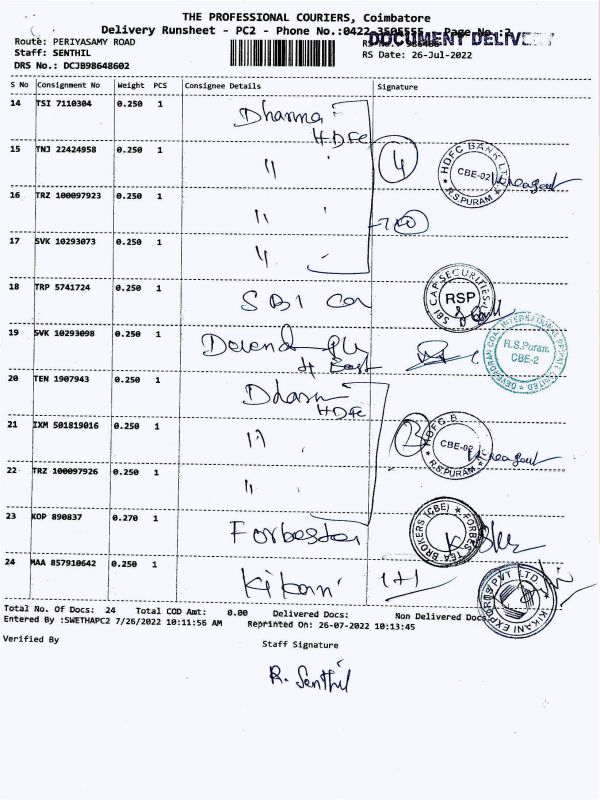 THE PROFESSIONAL COURIERS, Coimbatore
Delivery Runsheet - PC2 - Phone No.:0422 3505555 Page No.:2
DOCUMENT DELIVERY
Route: PERIYASAMY ROAD
Staff: SENTHIL
DRS No.: DCJB98648602
RS Date: 26-Jul-2022
S No Consignment No Weight PCS Consignee Details Signature
14 TSI 7110304 0.250 1 Dharma
HDFC
15 TNJ 22424958 0.250 1 "
4
HDFC BANK LTD
CBE-02
R.S PURAM
16 TRZ 100097923 0.250 1 "
17 SVK 10293073 0.250 1 "
18 TRP 5741724 0.250 1 SBI Cap
SBI CAP SECURITIES
RSP
19 SVK 10293098 0.250 1
R.S.Puram
CBE-2
20 TEN 1907943 0.250 1
HDFC
21 IXM 501819016 0.250 1 "
3
HDFC B
CBE-02
R.S PURAM
22 TRZ 100097926 0.250 1 "
23 KOP 890837 0.270 1 Forbes Tea
FORBES TEA BROKERS (CBE)
24 MAA 857910642 0.250 1 Kikani 1+1
KIKANI EXPORTS PVT LTD
Total No. Of Docs: 24 Total COD Amt: 0.00 Delivered Docs: Non Delivered Docs
Entered By :SWETHAPC2 7/26/2022 10:11:56 AM Reprinted On: 26-07-2022 10:13:45
Verified By
Staff Signature
R. Senthil